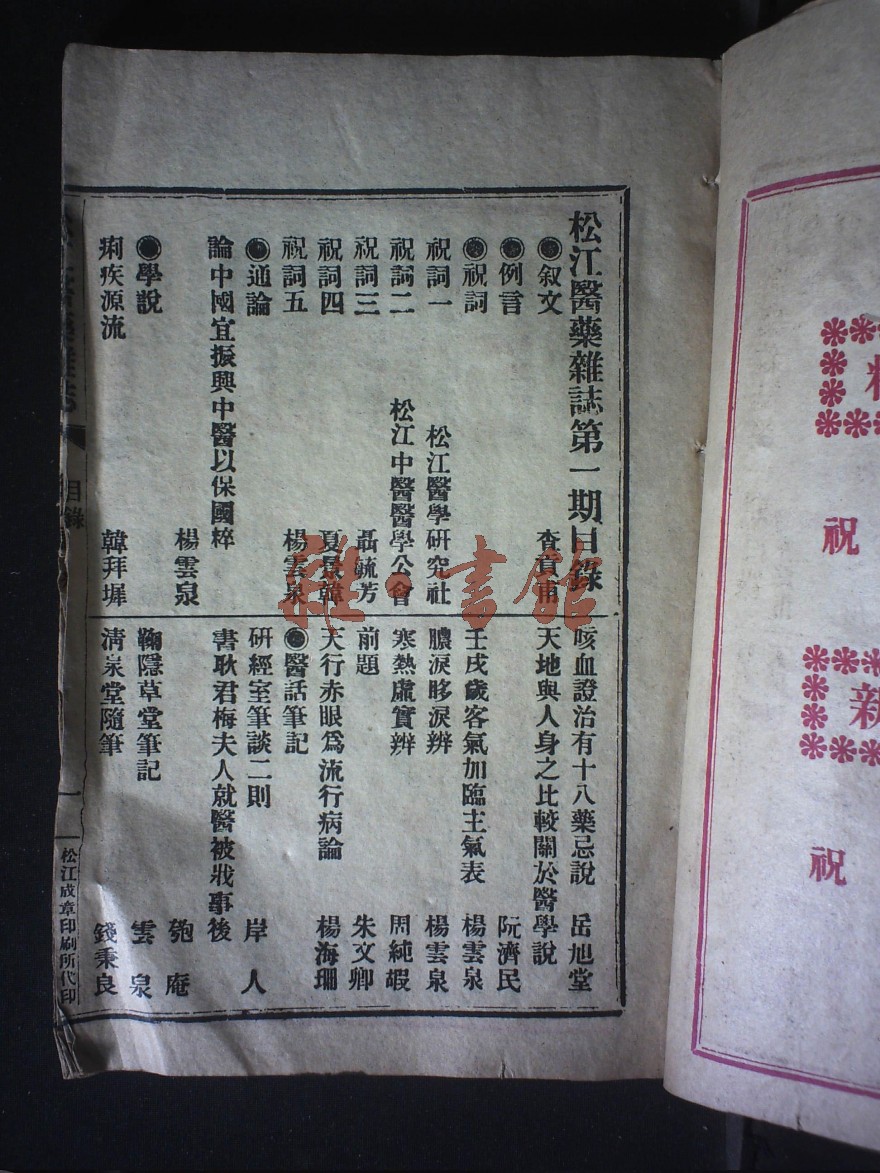 松江醫藥雜誌第一期目錄
●叙文
●例言
●祝詞
祝詞一 松江醫學研究社
祝詞二 松江中醫醫學公會
祝詞三 聶毓芳
祝詞四 夏景韓
祝詞五 楊雲泉
●通論
論中國宜振興中醫以保國粹
楊雲泉
●學說
痢疾源流 韓拜墀
咳血證治有十八藥忌說 岳旭堂
天地與人身之比較關於醫學說
阮濟民
壬戌歲客氣加臨主氣表 楊雲泉
膿淚眵淚辨 楊雲泉
寒熱虛實辨 周純嘏
前題 朱文卿
天行赤眼爲流行病論 楊海珊
●醫話筆記
研經室筆談二則 岸人
書耿君梅夫人就醫被戕事後
匏庵
鞠隱草堂筆記 雲泉
清泉堂隨筆 錢秉良
目錄
一
松江成章印刷所代印
雜·書館
祝
新
祝